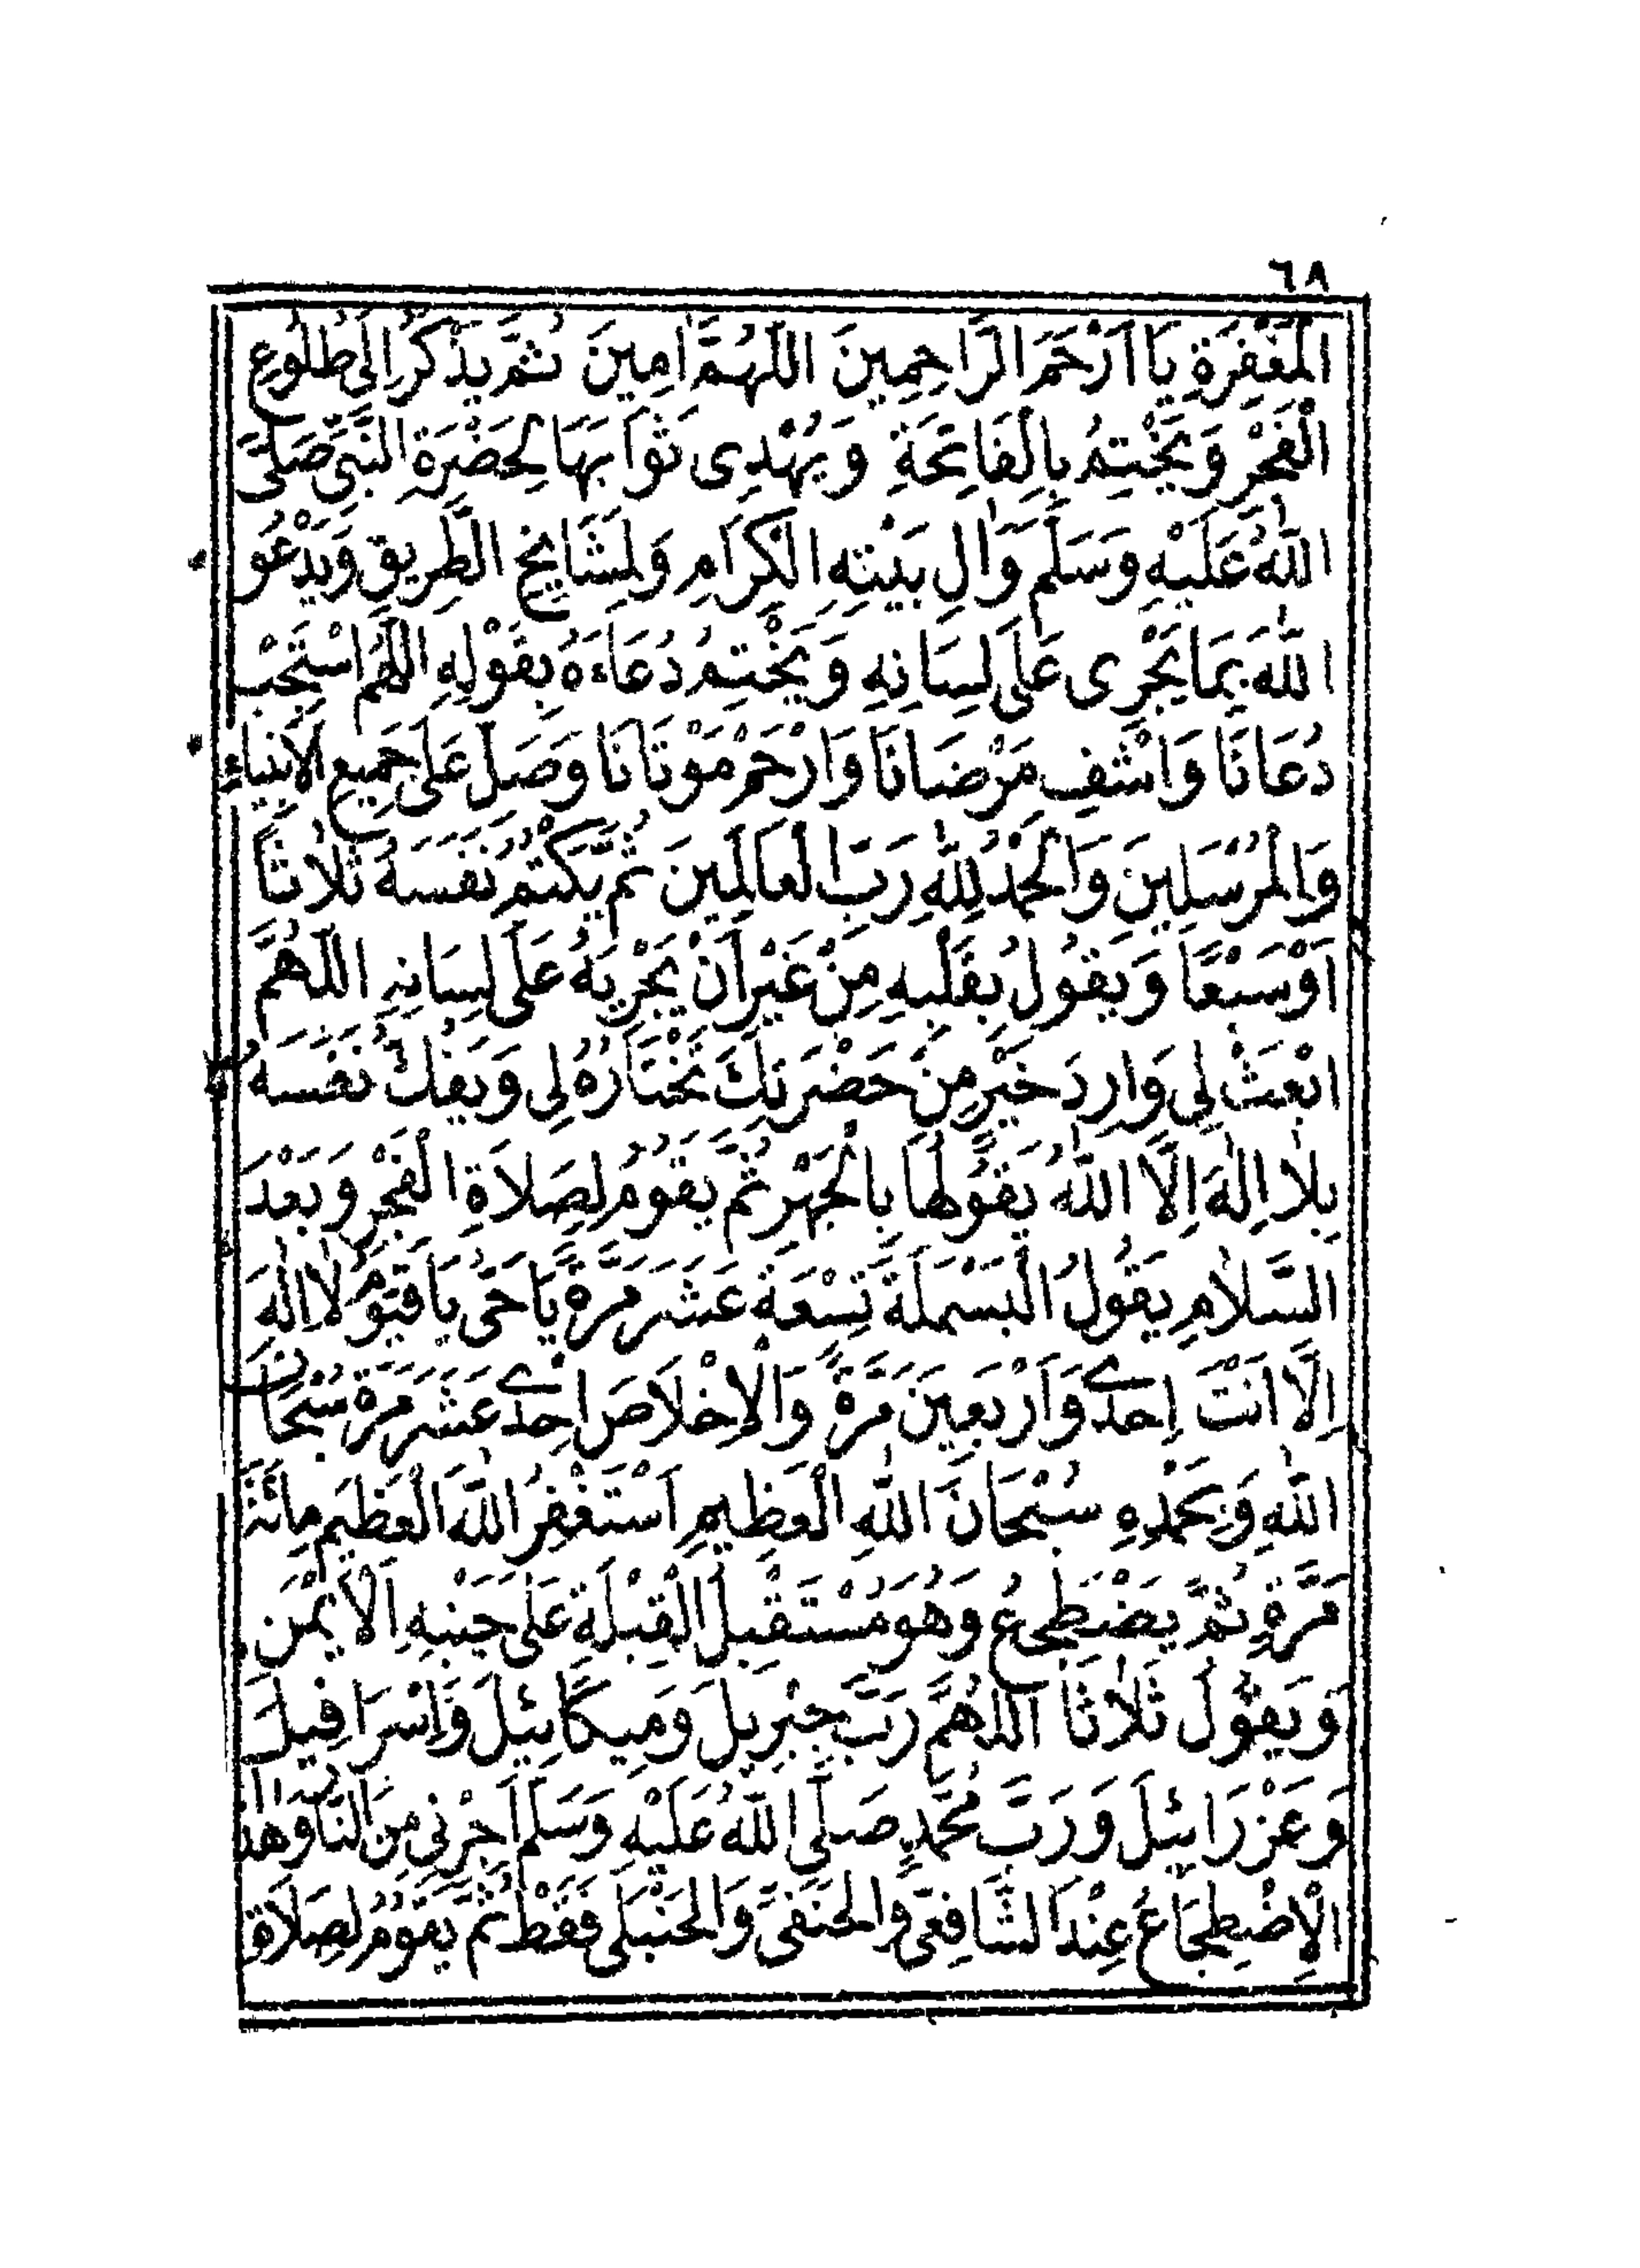 ٦٨
الْمَغْفِرَةِ يَا اَرْحَمَ الرَّاحِمِينَ اللّٰهُمَّ اٰمِينَ ثُمَّ يَذْكُرُ اِلَى طُلُوعِ
الْفَجْرِ وَيَخْتِمُ بِالْفَاتِحَةِ وَيُهْدِى ثَوَابَهَا لِحَضْرَةِ النَّبِىِّ صَلَّى
اللّٰهُ عَلَيْهِ وَسَلَّمَ وَاٰلِ بَيْتِهِ الْكِرَامِ وَلِمَشَايِخِ الطَّرِيقِ وَيَدْعُو
اللّٰهَ بِمَا يَجْرِى عَلَى لِسَانِهِ وَيَخْتِمُ دُعَاءَهُ بِقَوْلِهِ اللّٰهُمَّ اسْتَجِبْ
دُعَانَا وَاشْفِ مَرْضَانَا وَارْحَمْ مَوْتَانَا وَصَلِّ عَلَى جَمِيعِ الْاَنْبِيَاءِ
وَالْمُرْسَلِينَ وَالْحَمْدُ لِلّٰهِ رَبِّ الْعَالَمِينَ ثُمَّ يَكْتُمُ نَفَسَهُ ثَلَاثًا
اَوْ سَبْعًا وَيَقُولُ بِقَلْبِهِ مِنْ غَيْرِ اَنْ يُجْرِيَهُ عَلَى لِسَانِهِ اللّٰهُمَّ
ابْعَثْ لِى وَارِدَ خَيْرٍ مِنْ حَضْرَتِكَ تَخْتَارُهُ لِى وَيَفُكُّ نَفَسَهُ
بِلَا اِلٰهَ اِلَّا اللّٰهُ يَقُولُهَا بِالْجَهْرِ ثُمَّ يَقُومُ لِصَلَاةِ الْفَجْرِ وَبَعْدَ
السَّلَامِ يَقُولُ الْبَسْمَلَةَ تِسْعَةَ عَشَرَ مَرَّةً يَا حَىُّ يَا قَيُّومُ لَا اِلٰهَ
اِلَّا اَنْتَ اِحْدٰى وَاَرْبَعِينَ مَرَّةً وَالْاِخْلَاصَ اِحْدٰى عَشَرَ مَرَّةً سُبْحَانَ
اللّٰهِ وَبِحَمْدِهِ سُبْحَانَ اللّٰهِ الْعَظِيمِ اَسْتَغْفِرُ اللّٰهَ الْعَظِيمَ مِائَةَ
مَرَّةٍ ثُمَّ يَضْطَجِعُ وَهُوَ مُسْتَقْبِلَ الْقِبْلَةِ عَلَى جَنْبِهِ الْاَيْمَنِ
وَيَقُولُ ثَلَاثًا اَللّٰهُمَّ رَبَّ جِبْرِيلَ وَمِيكَائِيلَ وَاِسْرَافِيلَ
وَعَزْرَائِيلَ وَرَبَّ مُحَمَّدٍ صَلَّى اللّٰهُ عَلَيْهِ وَسَلَّمَ اَجِرْنِى مِنَ النَّارِ وَهٰذَا
الْاِضْطِجَاعُ عِنْدَ الشَّافِعِىِّ وَالْحَنَفِىِّ وَالْحَنْبَلِى فَقَطْ ثُمَّ يَقُومُ لِصَلَاةِ